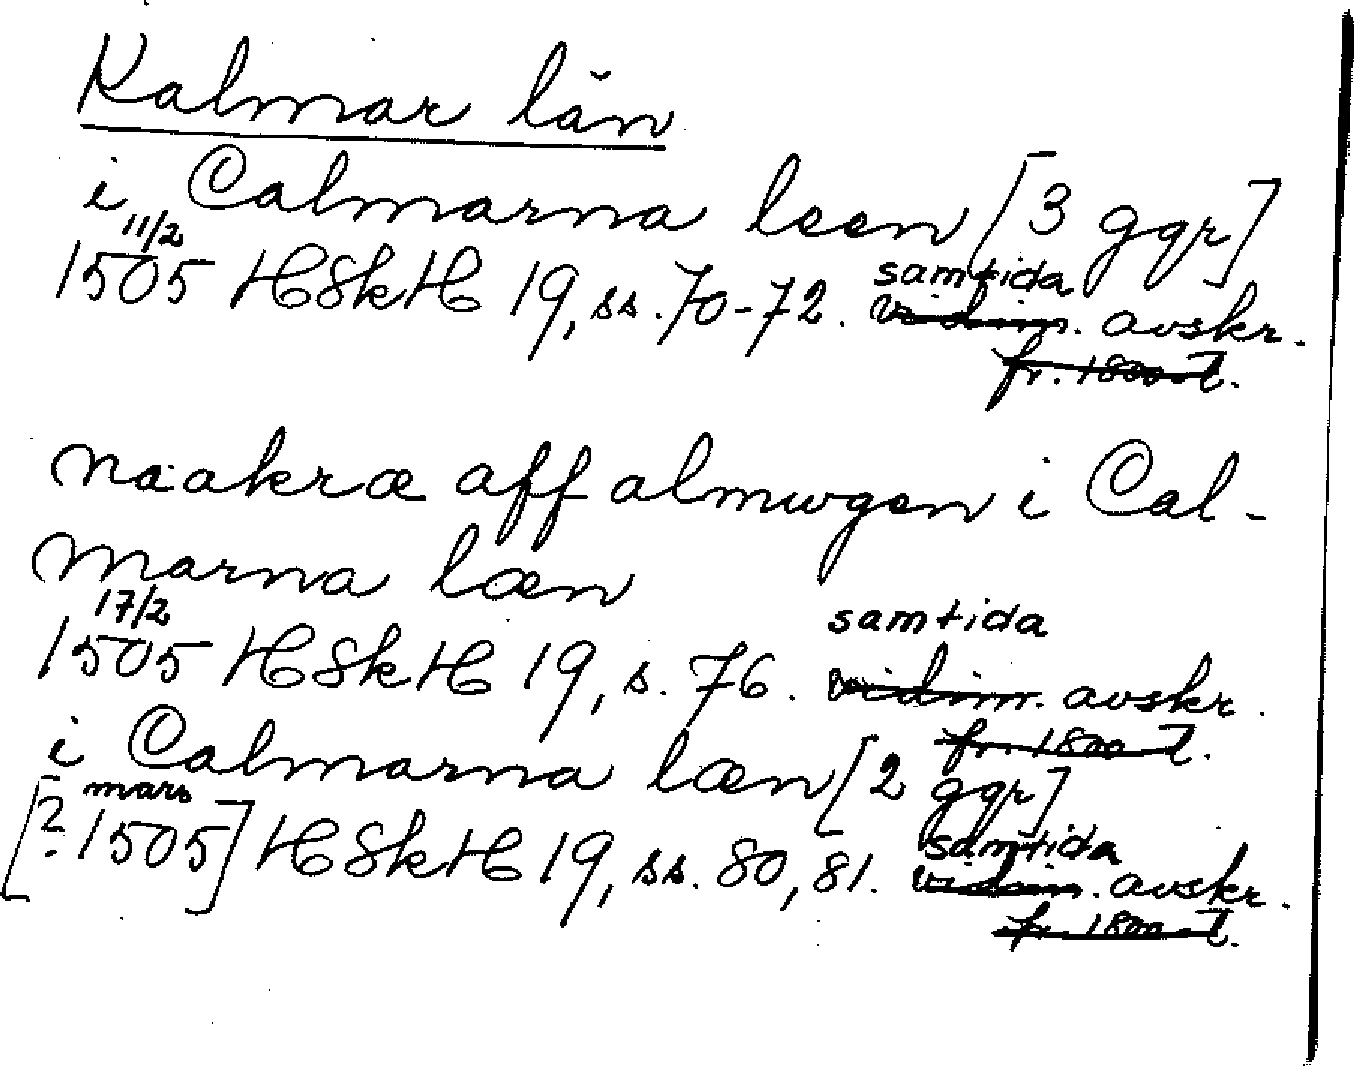 Kalmar län
i Calmarna leen [3 ggr]
11/2
1505 HSkH 19, ss. 70-72. samtida vidim. avskr.
fr. 1800-t.
naakræ aff almwgen i Cal-
marna læn
17/2 samtida
1505 HSkH 19, s. 76. vidim. avskr.
fr. 1800-t.
i Calmarna læn [2 ggr]
mars samtida
[? 1505] HSkH 19, ss. 80, 81. vidim. avskr.
fr. 1800-t.